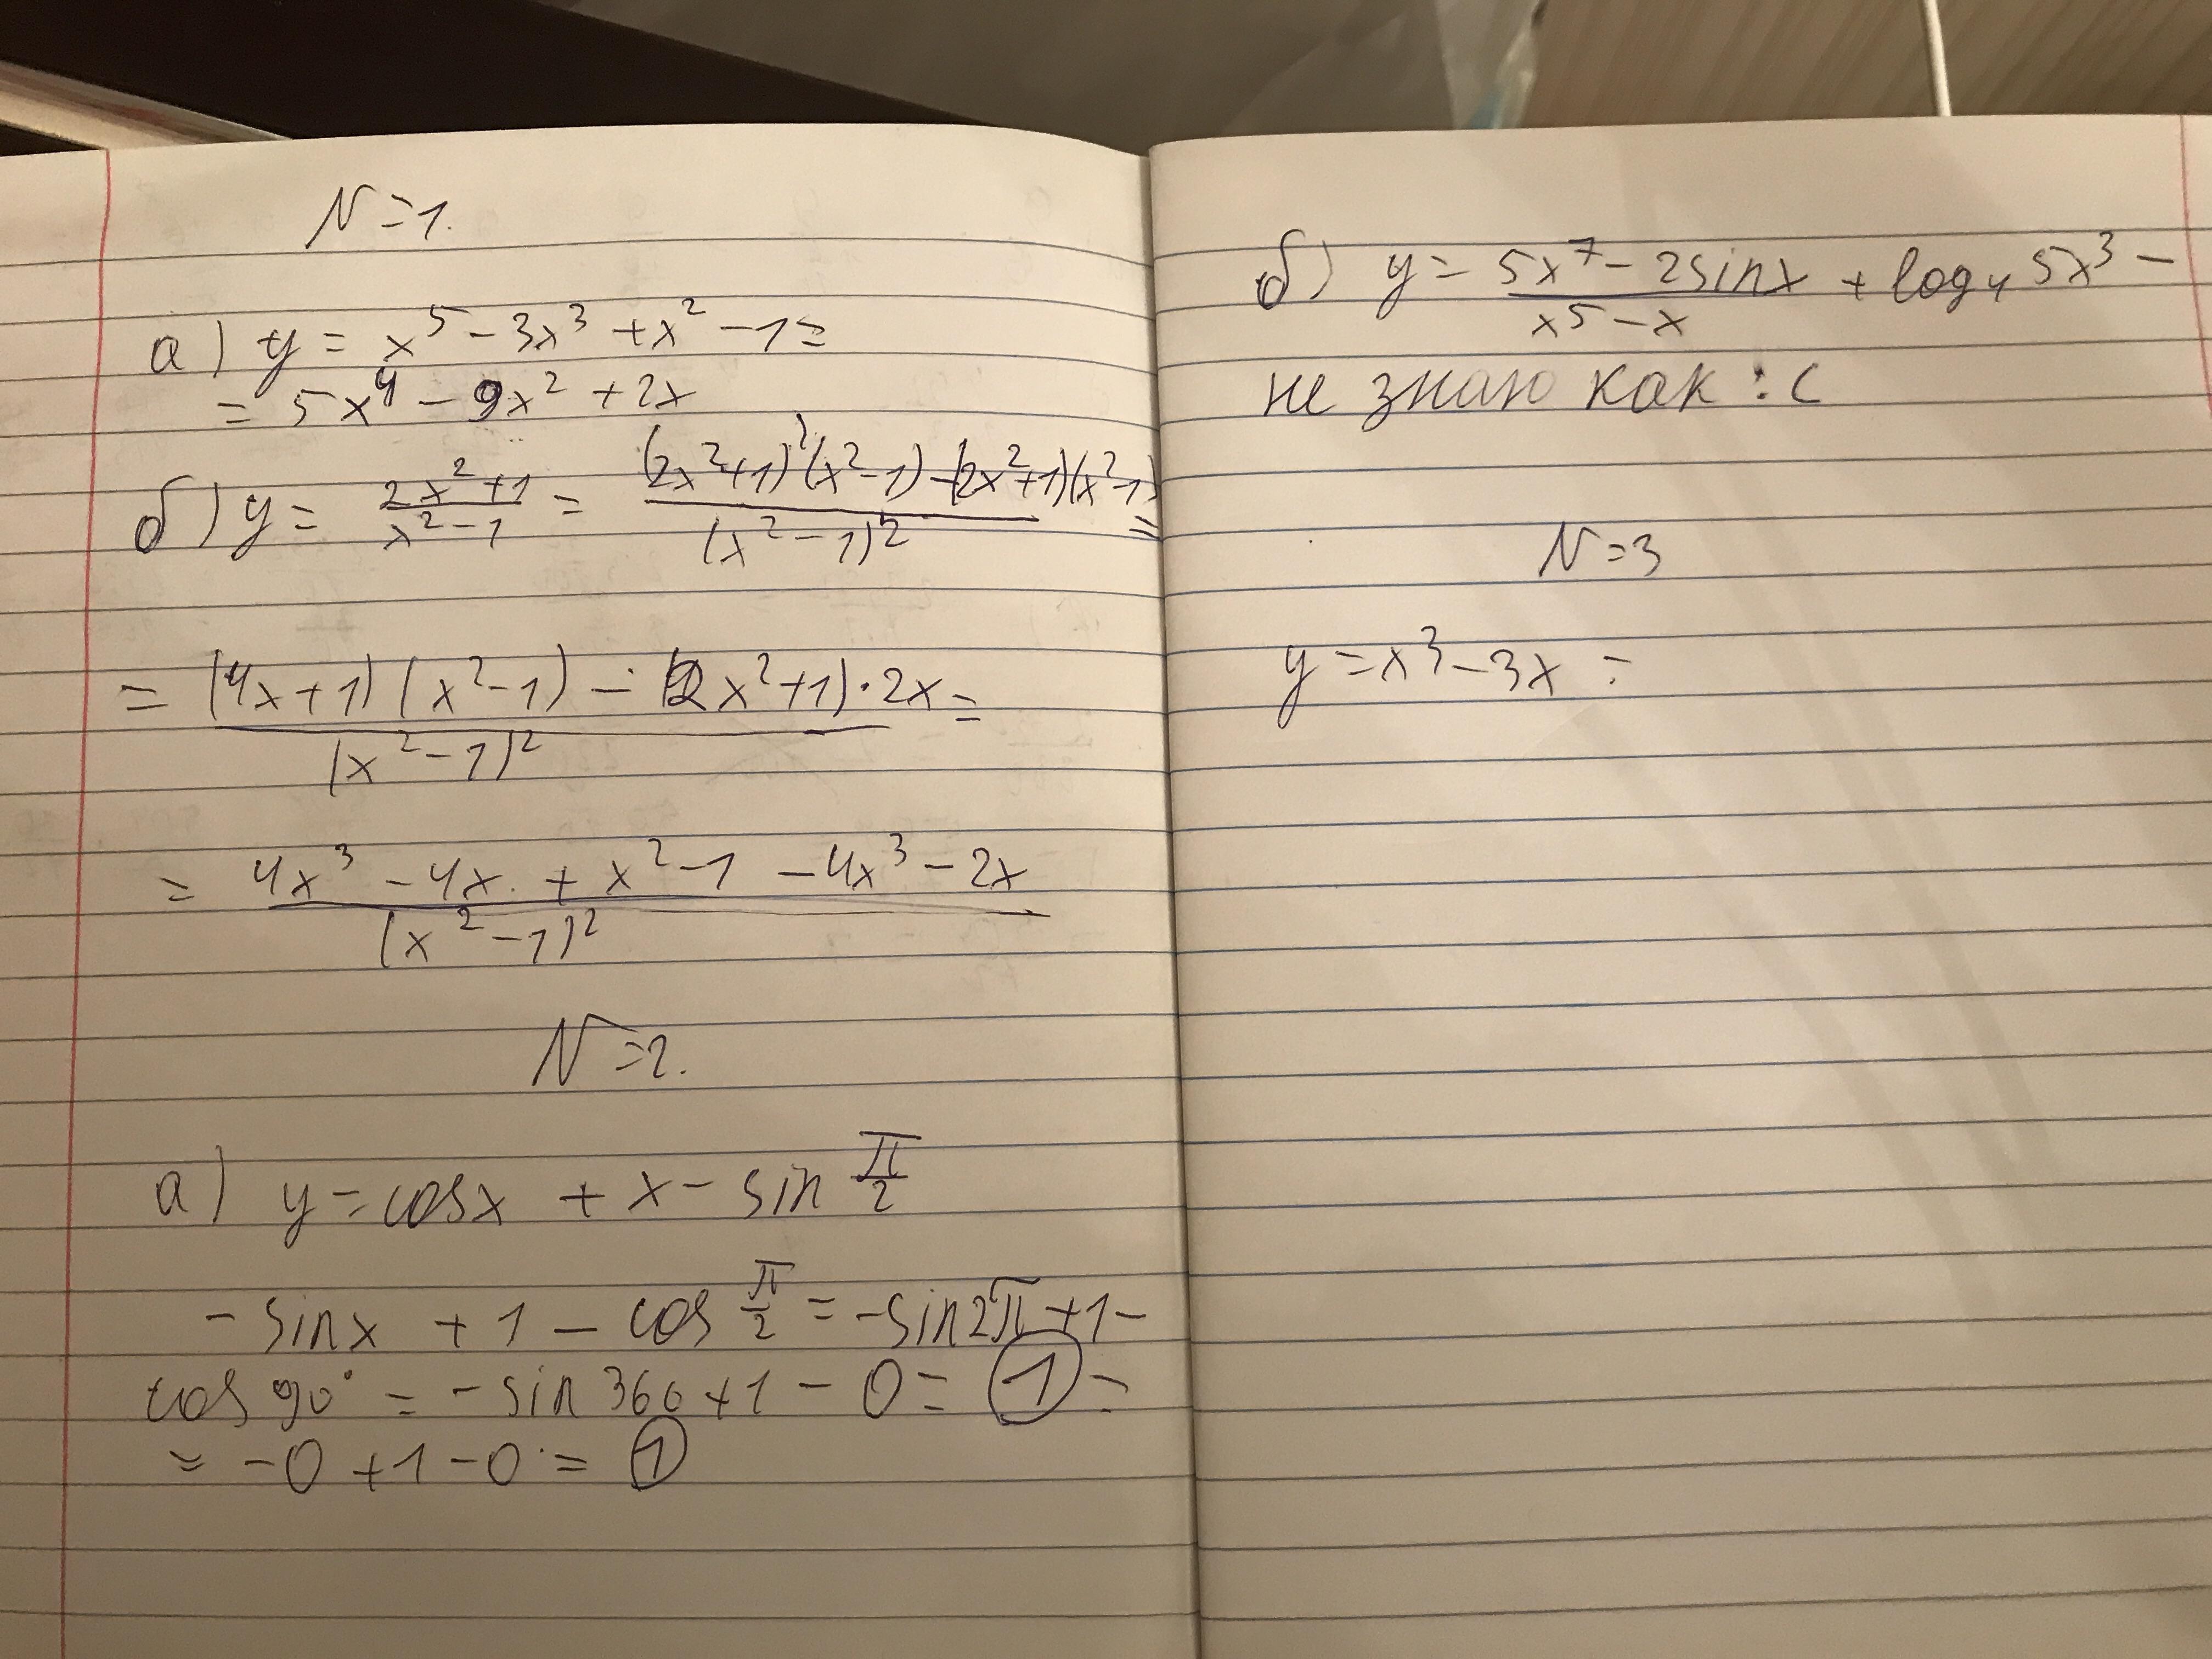 N=1.
а) y = x⁵ - 3x³ + x² - 1 =
= 5x⁴ - 9x² + 2x
б) y = (2x²+1)/(x²-1) = ((2x²+1)'(x²-1) - (2x²+1)(x²-1))/(x²-1)² =
= ((4x+1)(x²-1) - (2x²+1)·2x)/(x²-1)² =
= (4x³ - 4x + x² - 1 - 4x³ - 2x)/(x²-1)²
N=2.
а) y = cosx + x - sin π/2
- sinx + 1 - cos π/2 = -sin2π + 1 -
cos 90° = - sin 360 + 1 - 0 = 1 =
= -0 + 1 - 0 = 1
б) y = (5x⁷ - 2sinx)/(x⁵ - x) + log₄ 5x³ -
не знаю как :с
N=3
y = x³ - 3x =